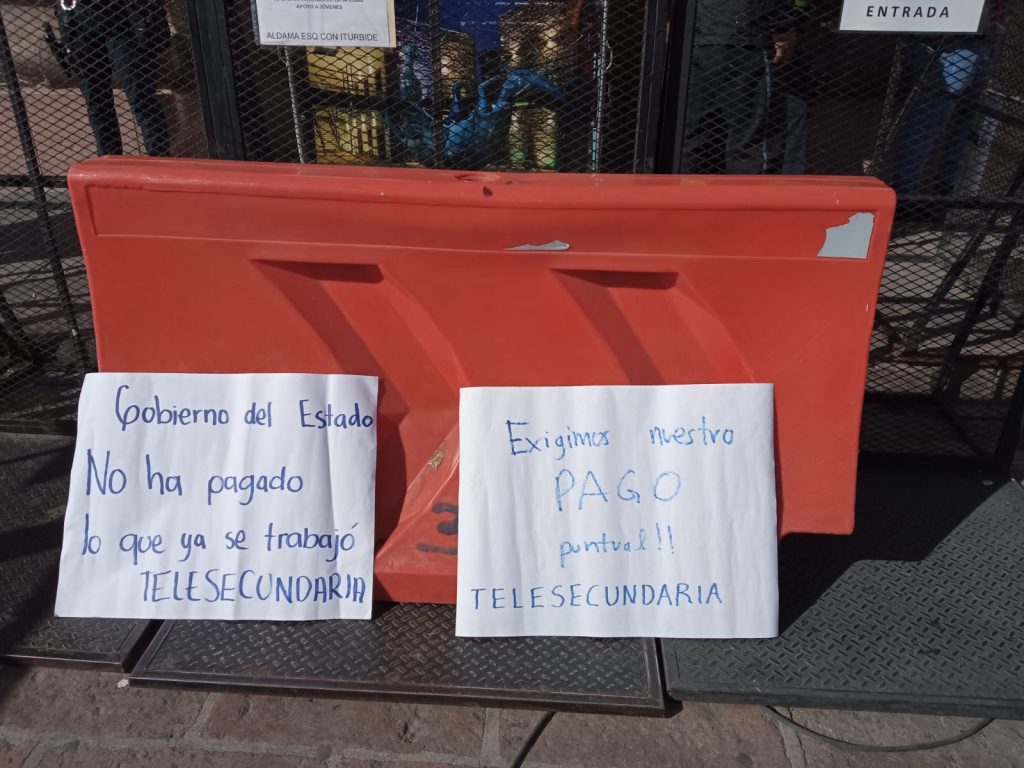 APOYO A JÓVENES
ALDAMA ESQ CON ITURBIDE
ENTRADA
Gobierno del Estado
No ha pagado
lo que ya se trabajó
TELESECUNDARIA
Exigimos nuestro
PAGO
puntual!!
TELESECUNDARIA